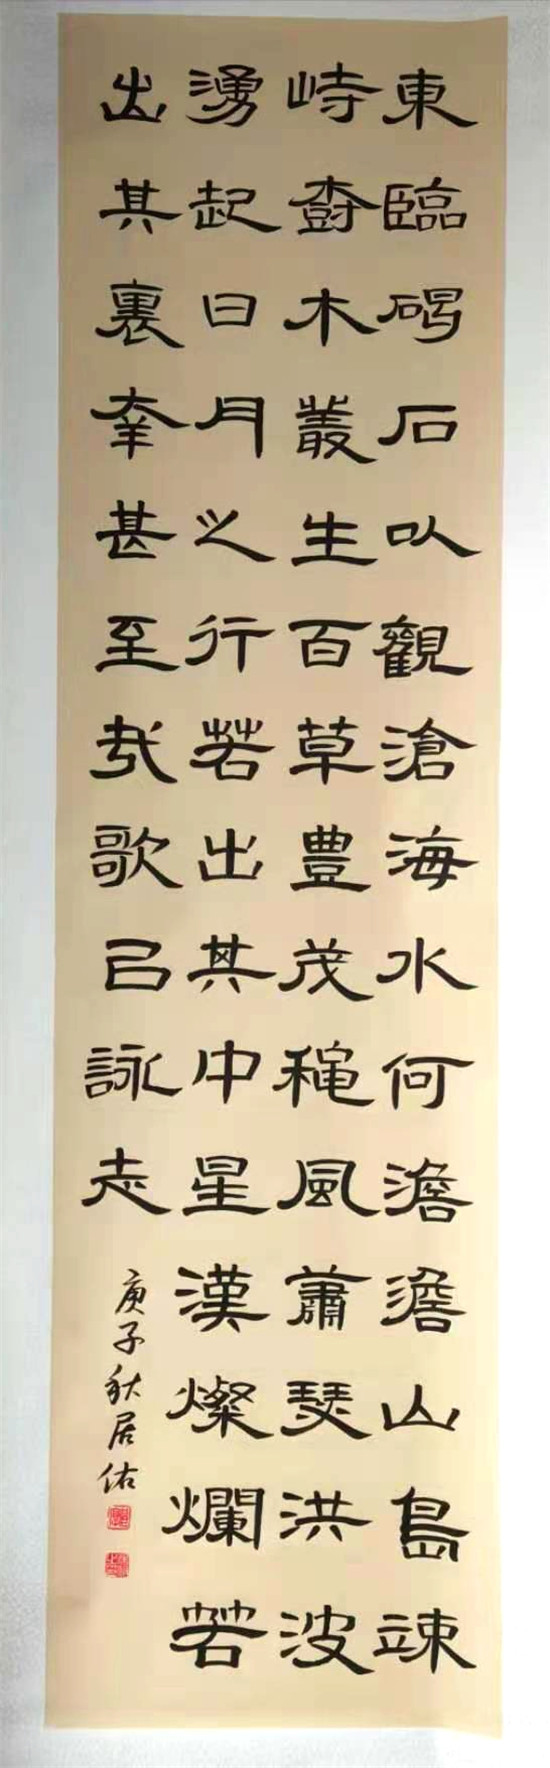 東臨碣石以觀滄海水何澹澹山島竦
峙樹木叢生百草豊茂穐風蕭瑟洪波
湧起日月之行若出其中星漢燦爛若
出其裏幸甚至哉歌以詠志
庚子秋居佑